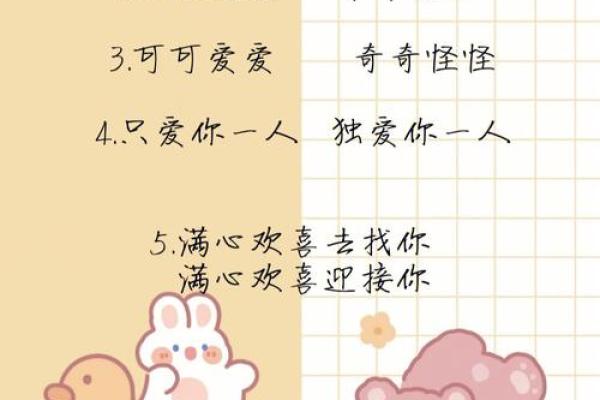 3.可可爱爱 奇奇怪怪
4..只爱你一人 独爱你一人
5.满心欢喜去找你
满心欢喜迎接你